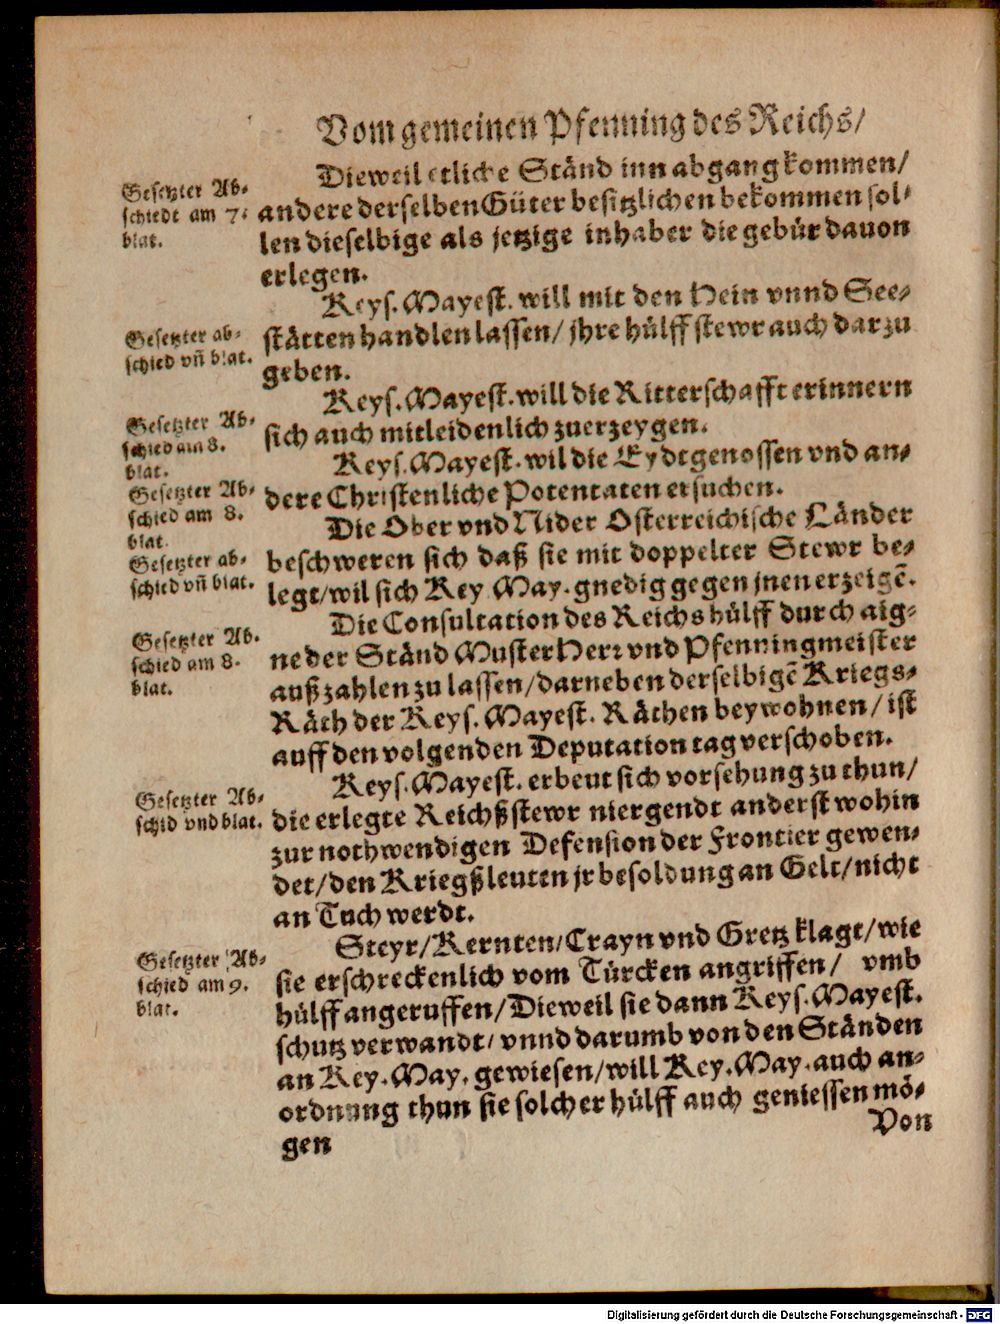 Vom gemeinen Pfenning des Reichs/
Gesetzter Ab-
schiedt am 7.
blat.
Dieweil etliche Ständ inn abgang kommen/
andere derselben Güter besitzlichen bekommen sol-
len dieselbige als jetzige inhaber die gebür dauon
erlegen.
Gesetzter ab-
schied vñ blat.
Keys. Mayest. will mit den Hein vnnd See-
stätten handlen lassen/ jhre hülff stewr auch darzu
geben.
Gesetzter Ab-
schied am 8.
blat.
Keys. Mayest. will die Ritterschafft erinnern
sich auch mitleidenlich zuerzeygen.
Gesetzter Ab-
schied am 8.
blat.
Keys. Mayest. wil die Eydtgenossen vnd an-
dere Christenliche Potentaten ersuchen.
Gesetzter ab-
schied vñ blat.
Die Ober vnd Nider Osterreichische Länder
beschweren sich daß sie mit doppelter Stewr be-
legt/ wil sich Key May. gnedig gegen jnen erzeigē.
Gesetzter Ab-
schied am 8.
blat.
Die Consultation des Reichs hülff durch aig-
ne der Ständ Muster Herr vnd Pfenningmeister
auß zahlen zu lassen/ darneben derselbigē Kriegs-
Räth der Keys. Mayest. Räthen beywohnen/ ist
auff den volgenden Deputation tag verschoben.
Gesetzter Ab-
schid vnd blat.
Keys. Mayest. erbeut sich vorsehung zu thun/
die erlegte Reichßstewr niergendt anderst wohin
zur nothwendigen Defension der Frontier gewen-
det/ den Kriegßleuten jr besoldung an Gelt/ nicht
an Tuch werdt.
Gesetzter Ab-
schied am 9.
blat.
Steyr/ Kernten/ Crayn vnd Gretz klagt/ wie
sie erschreckenlich vom Türcken angriffen/ vmb
hülff angeruffen/ Dieweil sie dann Keys. Mayest.
schutz verwandt/ vnnd darumb von den Ständen
an Key. May. gewiesen/ will Key. May. auch an-
ordnung thun sie solcher hülff auch geniessen mö-
gen
Von
Digitalisierung gefördert durch die Deutsche Forschungsgemeinschaft - DFG